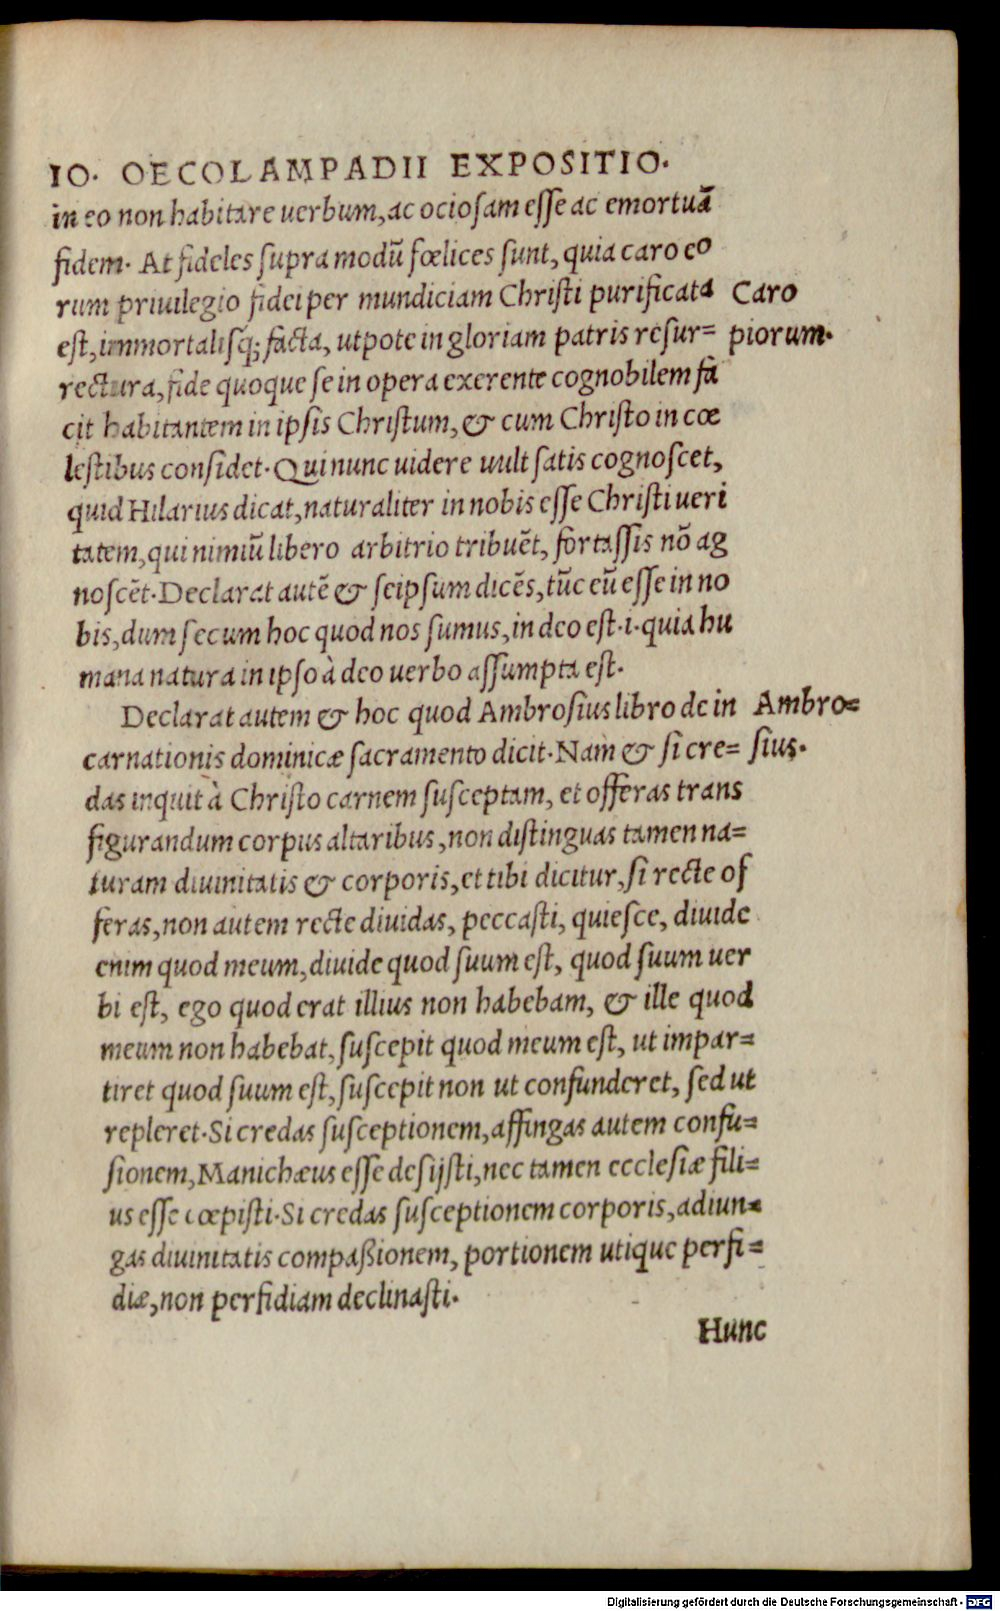 IO. OECOLAMPADII EXPOSITIO.
in eo non habitare uerbum, ac ociosam esse ac emortuā
fidem. At fideles supra modū fœlices sunt, quia caro eo
rum priuilegio fidei per mundiciam Christi purificata
Caro
est, immortalisq́; facta, utpote in gloriam patris resur=
piorum.
rectura, fide quoque se in opera exerente cognobilem fa
cit habitantem in ipsis Christum, & cum Christo in cœ
lestibus considet. Qui nunc uidere uult satis cognoscet,
quid Hilarius dicat, naturaliter in nobis esse Christi ueri
tatem, qui nimiū libero arbitrio tribuēt, fortassis nō ag
noscēt. Declarat autē & seipsum dicēs, tūc eū esse in no
bis, dum secum hoc quod nos sumus, in deo est .i. quia hu
mana natura in ipso à deo uerbo assumpta est.
Declarat autem & hoc quod Ambrosius libro de in
Ambro=
carnationis dominicæ sacramento dicit. Nam & si cre=
sius.
das inquit à Christo carnem susceptam, et offeras trans
figurandum corpus altaribus, non distinguas tamen na=
turam diuinitatis & corporis, et tibi dicitur, si recte of
feras, non autem recte diuidas, peccasti, quiesce, diuide
enim quod meum, diuide quod suum est, quod suum uer
bi est, ego quod erat illius non habebam, & ille quod
meum non habebat, suscepit quod meum est, ut impar=
tiret quod suum est, suscepit non ut confunderet, sed ut
repleret. Si credas susceptionem, affingas autem confu=
sionem, Manichæus esse desijsti, nec tamen ecclesiæ fili=
us esse cœpisti. Si credas susceptionem corporis, adiun=
gas diuinitatis compaßionem, portionem utique perfi=
diæ, non perfidiam declinasti.
Hunc
Digitalisierung gefördert durch die Deutsche Forschungsgemeinschaft - DFG